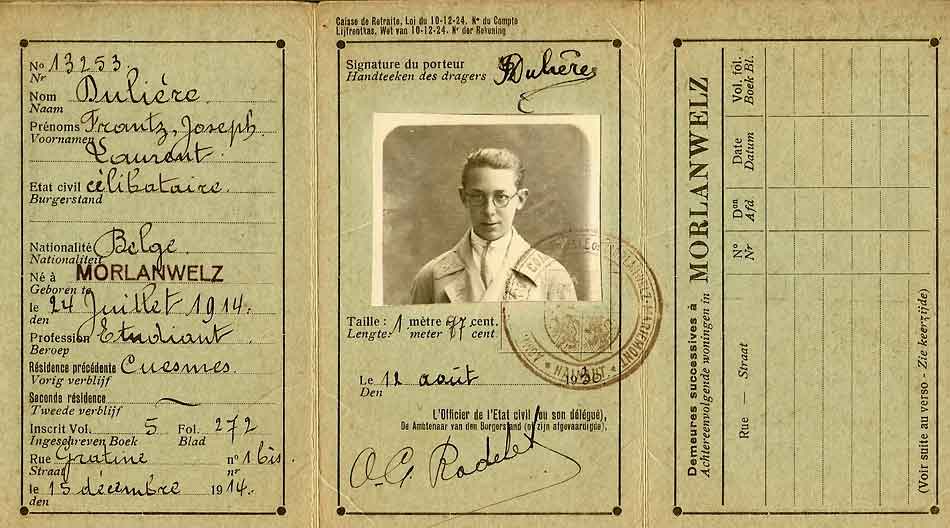 No 13253.
Nr
Nom Dulière
Naam
Prénoms Frantz, Joseph
Voornamen
Laurent
Etat civil célibataire.
Burgerstand
Nationalité Belge
Nationaliteit
Né à MORLANWELZ
Geboren te
le 24 Juillet 1914.
den
Profession Etudiant
Beroep
Résidence précédente Cuesmes
Vorig verblijf
Seconde résidence
Tweede verblijf
Inscrit Vol. 5 Fol. 272
Ingeschreven Boek Blad
Rue Gratine no 1 bis.
Straat nr
le 15 décembre 1914.
den
Caisse de Retraite, Loi du 10-12-24. No du Compte
Lijfrentkas, Wet van 10-12-24. Nr der Rekening
Signature du porteur Dulière
Handteeken des dragers
Taille : 1 mètre 87 cent.
Lengte: meter cent
Le 12 août 193
Den
HAINAUT
L'Officier de l'Etat civil (ou son délégué),
De Ambtenaar van den Burgerstand (of zijn afgevaardigde),
Demeures successives à MORLANWELZ
Achtereenvolgende woningen in
Rue — Straat
No
Nr
Don
Afd
Date
Datum
Vol. fol.
Boek Bl.
(Voir suite au verso - Zie keerzijde)